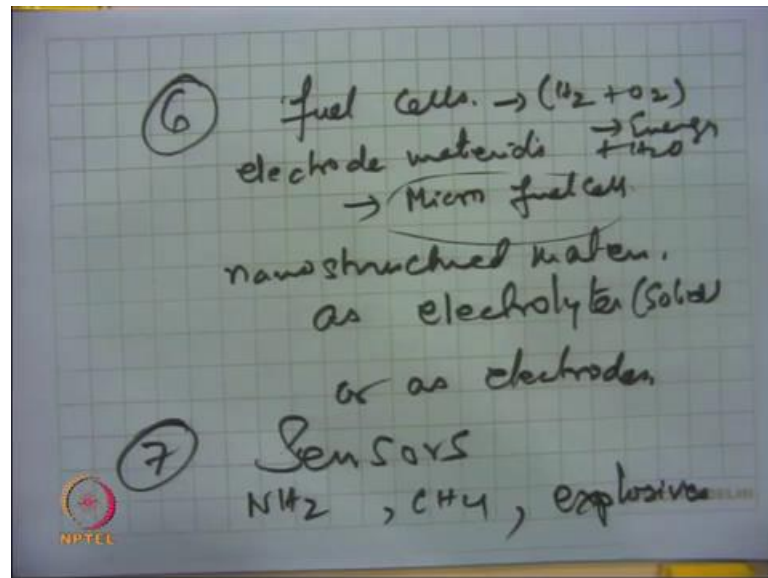 ⑥ fuel cells. → (H2 + O2)
→ Energy
electrode materials + H2O
→ Micro fuel cell
nanostructured mater.
as electrolytes (solid)
or as electrodes
⑦ Sensors
NH2 , CH4 , explosives
NPTEL